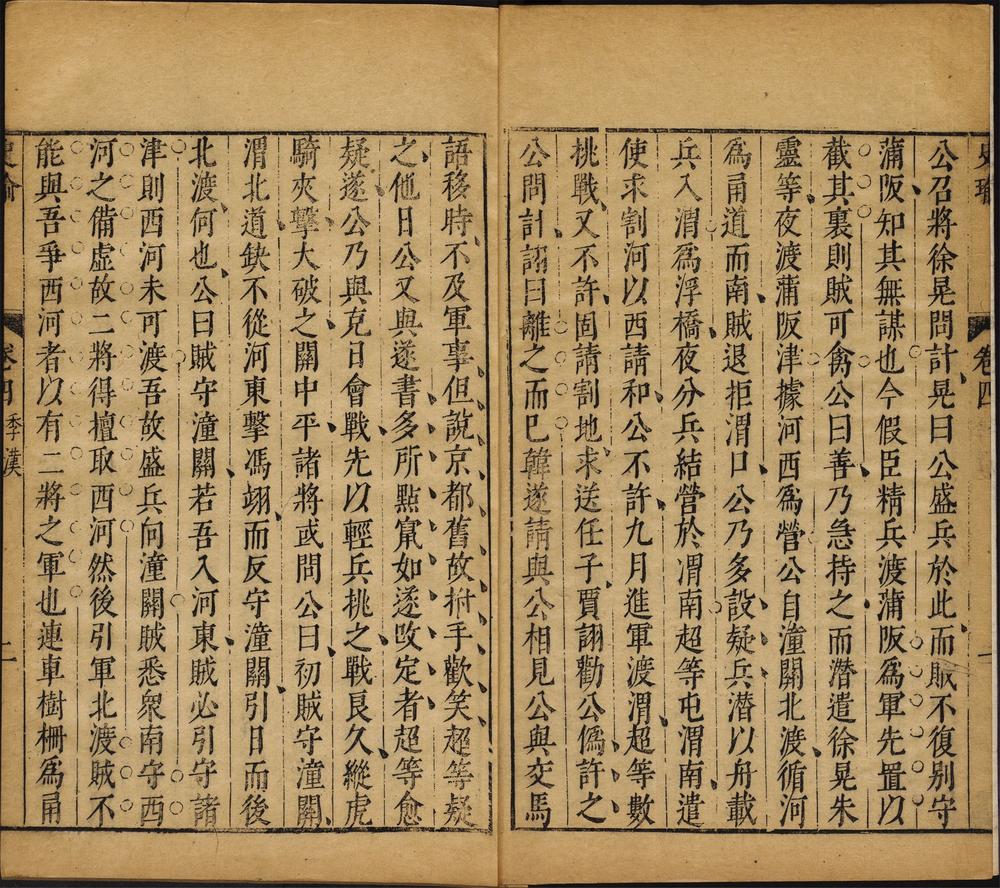 卷四
一
公召將徐晃問計晃曰公盛兵於此而賊不復別守
蒲阪知其無謀也今假臣精兵渡蒲阪爲軍先置以
截其裏則賊可禽公曰善乃急持之而潛遣徐晃朱
靈等夜渡蒲阪津據河西爲營公自潼關北渡循河
爲甬道而南賊退拒渭口公乃多設疑兵潛以舟載
兵入渭爲浮橋夜分兵結營於渭南超等屯渭南遣
使求割河以西請和公不許九月進軍渡渭超等數
桃戰又不許固請割地求送任子賈詡勸公僞許之
公問計詡曰離之而已韓遂請與公相見公與交馬
語移時不及軍事但說京都舊故拊手歡笑超等疑
之他日公又與遂書多所點竄如遂改定者超等愈
疑遂公乃與克日會戰先以輕兵桃之戰良久縱虎
騎夾擊大破之關中平諸將或問公曰初賊守潼關
渭北道缺不從河東擊馮翊而反守潼關引日而後
北渡何也公曰賊守潼關若吾入河東賊必引守諸
津則西河未可渡吾故盛兵向潼關賊悉衆南守西
河之備虛故二將得擅取西河然後引軍北渡賊不
能與吾爭西河者以有二將之軍也連車樹柵爲甬
卷四 季漢
二